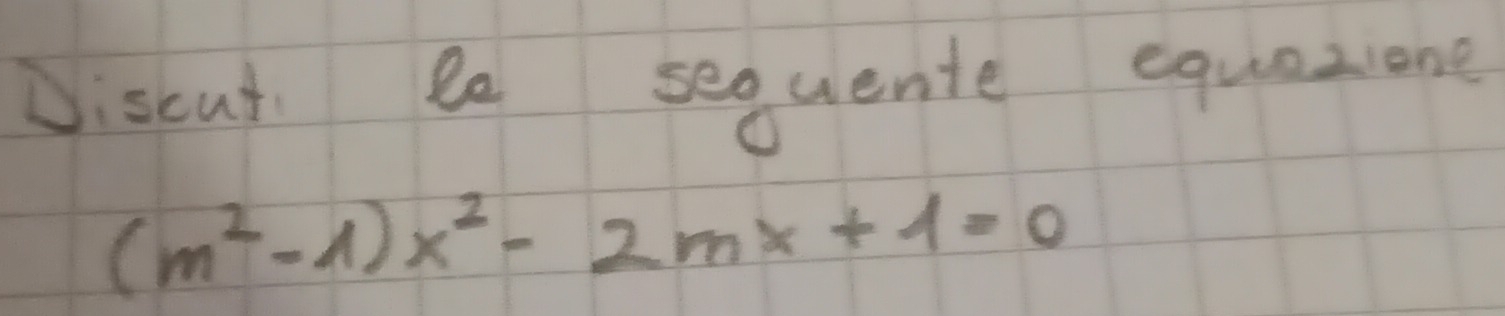 Discuti la seguente equazione
(m²-1)x²- 2mx + 1 = 0